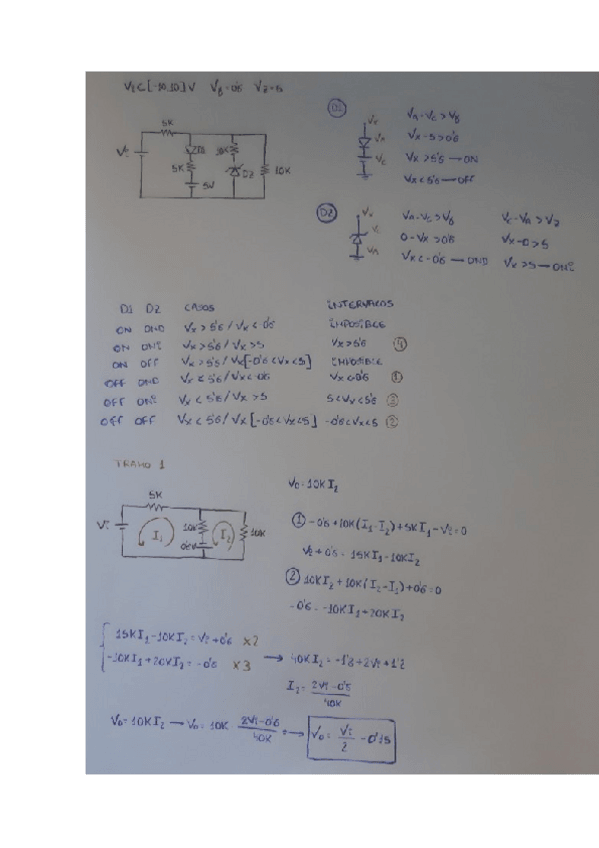 Vi ∈ [-10,10] V   Vɣ = 0'6   Vz = 5
5K
Vi
D1
10K
5K
DZ
10K
5V
D1
Vx
VA
Vc
VA - Vc > Vɣ
Vx - 5 > 0'6
Vx > 5'6 → ON
Vx < 5'6 → OFF
DZ
Vx
Vc
VA
VA - Vc > Vɣ
0 - Vx > 0'6
Vx < -0'6 → OND
Vc - VA > Vz
Vx - 0 > 5
Vx > 5 → ONZ
D1   DZ   CASOS   INTERVALOS
ON   OND   Vx > 5'6 / Vx < 0'6   IMPOSIBLE
ON   ONZ   Vx > 5'6 / Vx > 5   Vx > 5'6   ④
ON   OFF   Vx > 5'6 / Vx [-0'6 < Vx < 5]   IMPOSIBLE
OFF   OND   Vx < 5'6 / Vx < -0'6   Vx < 0'6   ①
OFF   ONZ   Vx < 5'6 / Vx > 5   5 < Vx < 5'6   ③
OFF   OFF   Vx < 5'6 / Vx [-0'6 < Vx < 5]   -0'6 < Vx < 5   ②
TRAMO 1
5K
Vi
I1
10K
0'6V
I2
10K
Vo = 10K I2
① -0'6 + 10K(I1 - I2) + 5K I1 - Vi = 0
Vi + 0'6 = 15K I1 - 10K I2
② 10K I2 + 10K(I2 - I1) + 0'6 = 0
-0'6 = -10K I1 + 20K I2
15K I1 - 10K I2 = Vi + 0'6   x2
-10K I1 + 20K I2 = -0'6   x3   → 40K I2 = -1'8 + 2Vi + 1'2
I2 = (2Vi - 0'6) / 40K
Vo = 10K I2 → Vo = 10K · (2Vi - 0'6) / 40K → Vo = Vi / 2 - 0'15